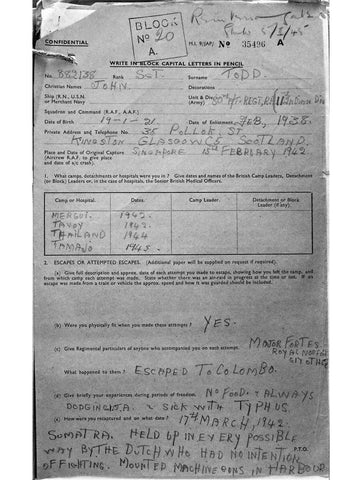 BLOCK
No 20
A.
CONFIDENTIAL
M.I. 9/JAP/ No 35496 A
WRITE IN BLOCK CAPITAL LETTERS IN PENCIL
No. 882138 Rank SGT. Surname TODD.
Christian Names JOHN. Decorations
Ship (R.N., U.S.N. or Merchant Navy Unit & Division (Army) 80TH A/T. REGT, RA, 11TH INDIAN DIV
Squadron and Command (R.A.F., A.A.F.)
Date of Birth 19-1-21. Date of Enlistment FEB, 1938.
Private Address and Telephone No. 35 POLLOK. ST.
KINGSTON GLASGOW C5 SCOTLAND.
Place and Date of Original Capture SINGAPORE 15TH FEBRUARY 1942
(Aircrew R.A.F. to give place and date of a/c crash).
1. What camps, detachments or hospitals were you in? Give dates and names of the British Camp Leaders, Detachment (or Block) Leaders or, in the case of hospitals, the Senior British Medical Officers.
Camp or Hospital. Dates. Camp Leader. Detachment or Block Leader (if any).
MERGUI. 1942.
TAVOY 1942.
THAILAND 1944
TAMAJO 1945.
2. ESCAPES OR ATTEMPTED ESCAPES. (Additional paper will be supplied on request if required).
(a) Give full description and approx. date of each attempt you made to escape, showing how you left the camp, and from which camp each attempt was made. State whether there was an air-raid in progress at the time or not. If an escape was made from a train or vehicle the approx. speed and how it was guarded should be included.
(b) Were you physically fit when you made these attempts? YES.
(c) Give Regimental particulars of anyone who accompanied you on each attempt. MAJOR FORTES
ROYAL
What happened to them? ESCAPED TO COLOMBO.
(d) Give briefly your experiences during periods of freedom. NO FOOD. & ALWAYS
& SICK WITH TYPHUS.
(e) How were you recaptured and on what date? 17TH MARCH, 1942.
P.T.O.
SUMATRA. HELD UP IN EVERY POSSIBLE
WAY BY THE DUTCH WHO HAD NO INTENTION
OF FIGHTING. MOUNTED MACHINE GUNS IN HARBOUR